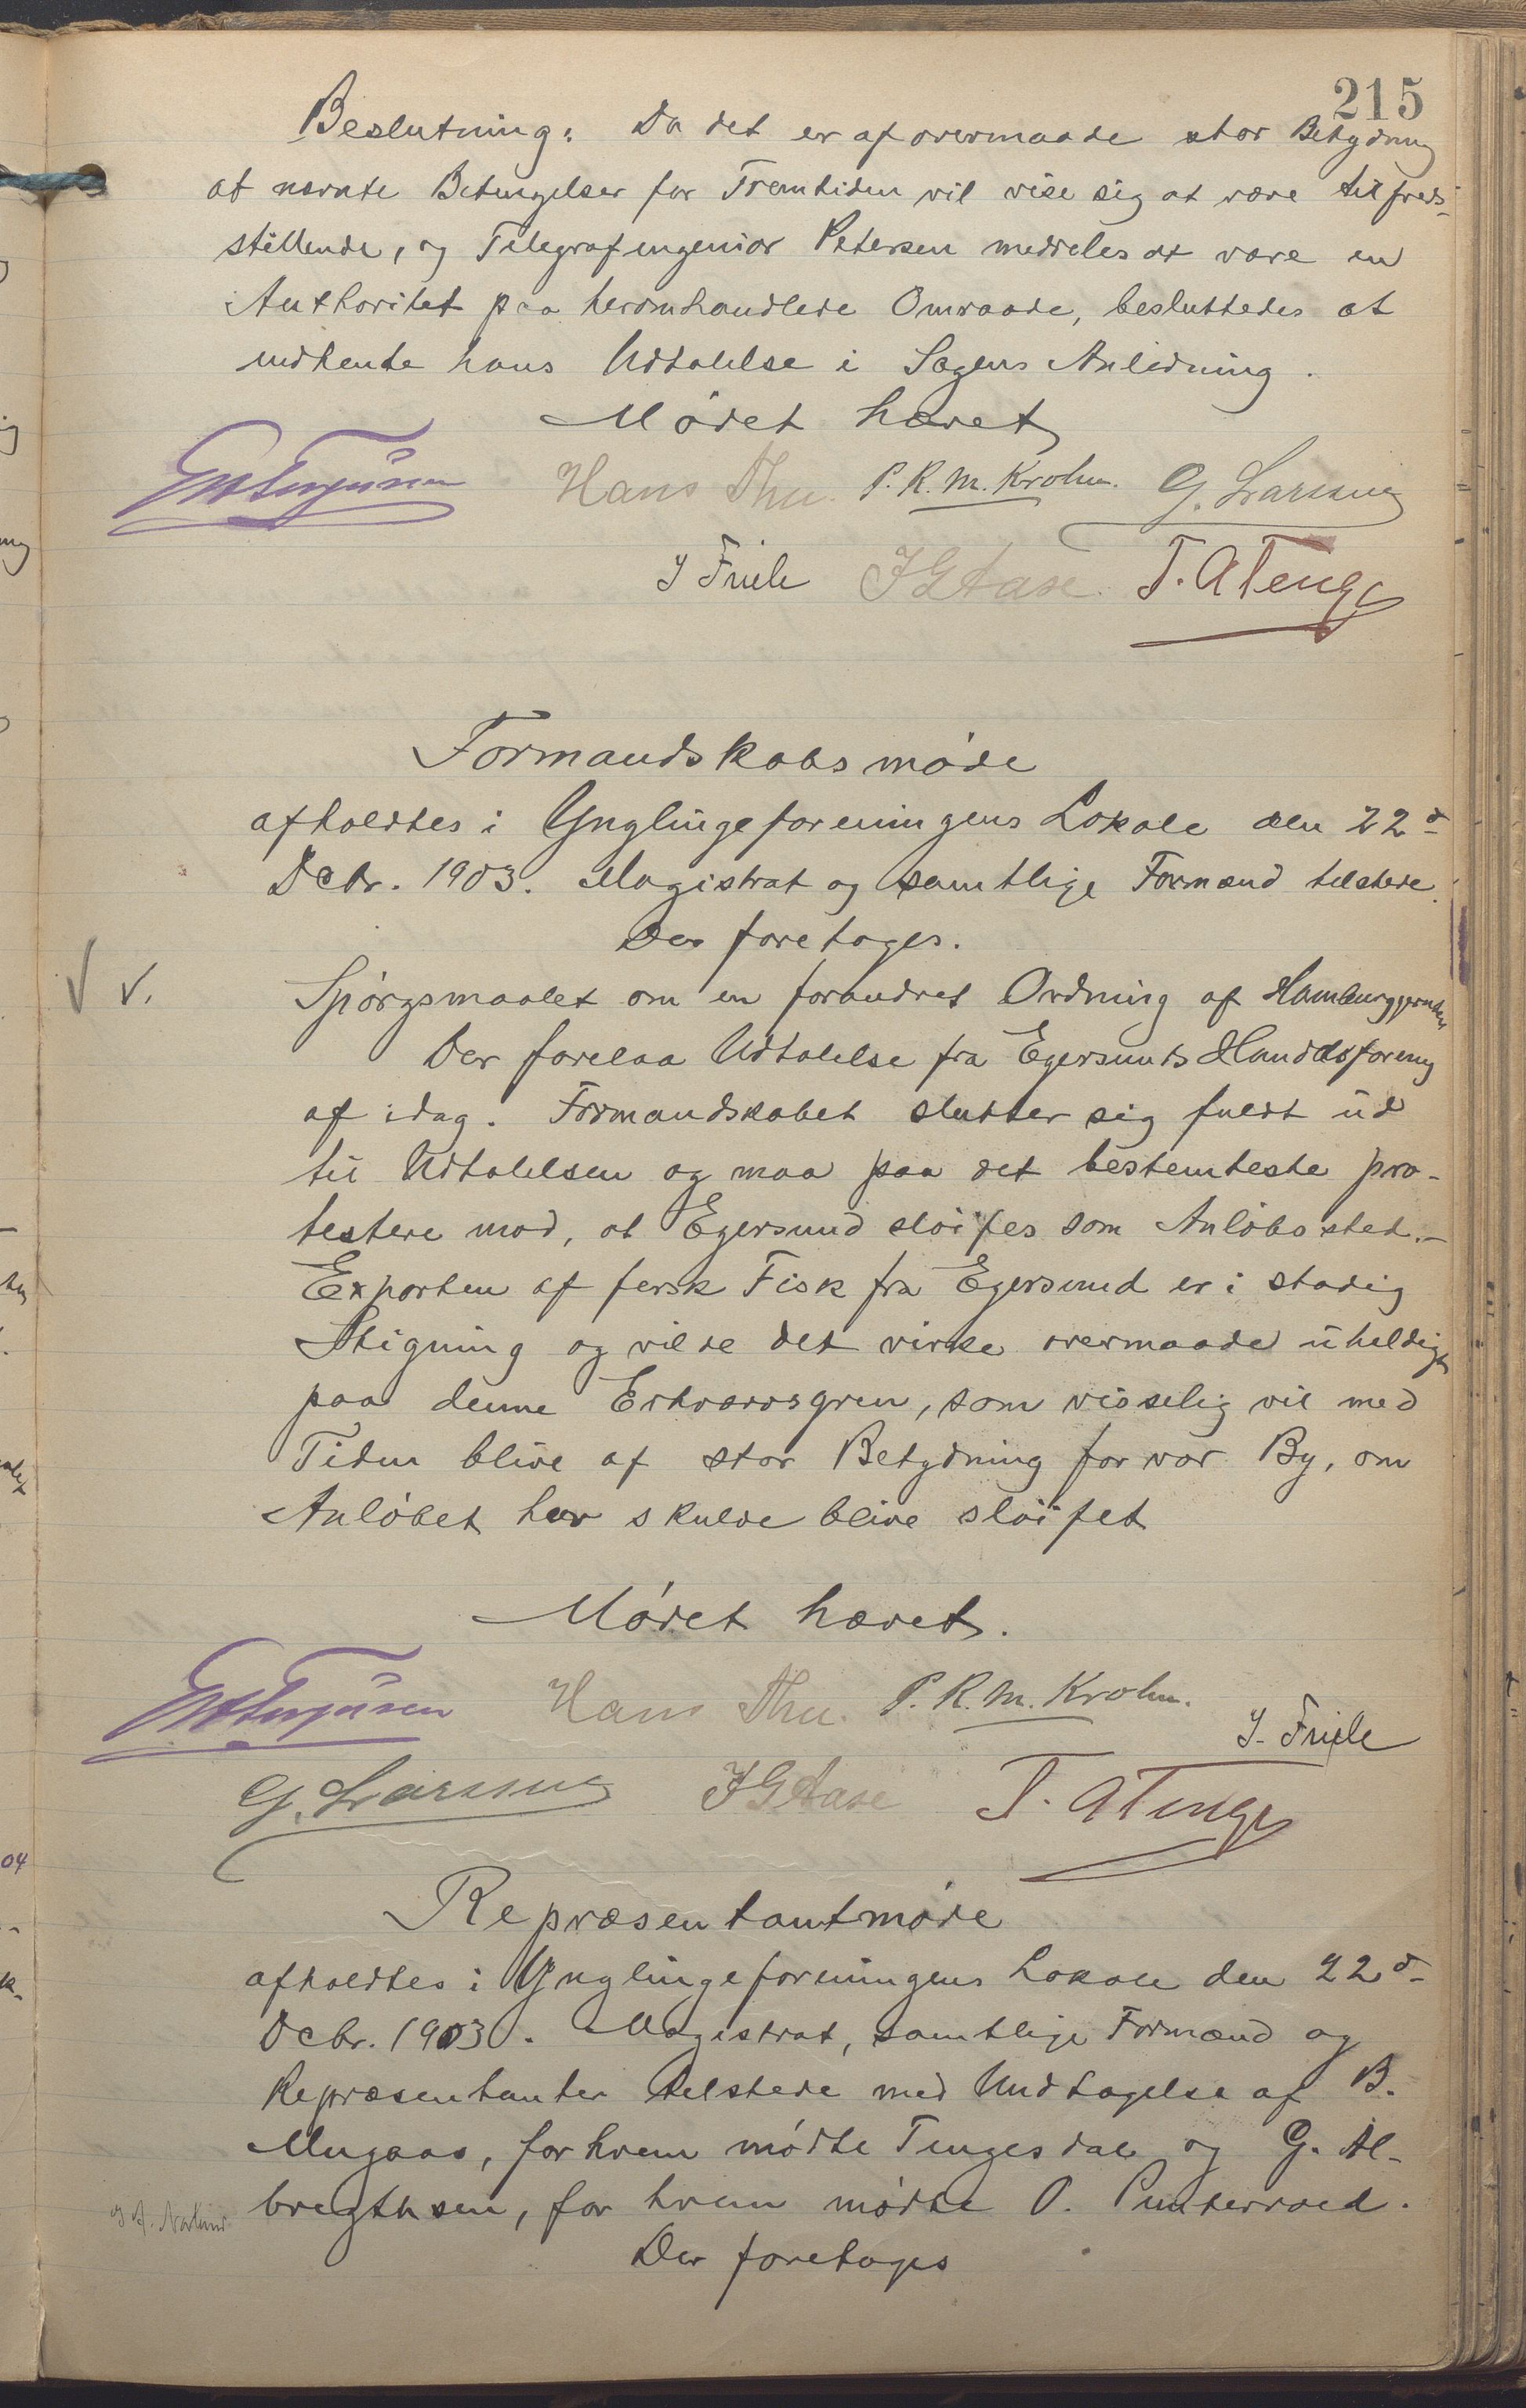 215
Beslutning: Da det er af overmaade stor Betydning
at nævnte Betingelser for Fremtiden vil vise sig at være tilfreds-
stillende, og Telegrafingeniør Petersen meddeles at være en
Authoritet paa heromhandlede Omraade, besluttedes at
indhente hans Udtalelse i Sagens Anledning.
Mødet hævet
Hans Thu. P. R. M. Krohn. G. Larssen
J Friele J G Aase. T. A Tengs
Formandskabsmøde
afholdtes i Ynglingeforeningens Lokale den 22d
Dcbr. 1903. Magistrat og samtlige Formænd tilstede.
Der foretoges.
V V.
Spørgsmaalet om en forandret Ordning af Hamburgerruten
Der forelaa Udtalelse fra Egersunds Handelsforening
af idag. Formandskabet slutter sig fuldt ud
til Udtalelsen og maa paa det bestemteste pro-
testere mod, at Egersund sløifes som Anløbssted.-
Exporten af fersk Fisk fra Egersund er i stadig
Stigning og vilde det virke overmaade uheldigt
paa denne Erhvervsgren, som visselig vil med
Tiden blive af stor Betydning for vor By, om
Anløbet her skulde blive sløifet
Mødet hævet.
Hans Thu. P. R. M. Krohn.
J. Friele
G. Larssen J G Aase T. A Tengs
Repræsentantmøde
afholdtes i Ynglingeforeningens Lokale den 22d
Dcbr. 1903. Magistrat, samtlige Formænd og
Repræsentanter tilstede med Undtagelse af B.
Mugaas, for hvem mødte Tengesdal og G. Al-
bregthsen, for hvem mødte O. Puntervold.
Der foretoges